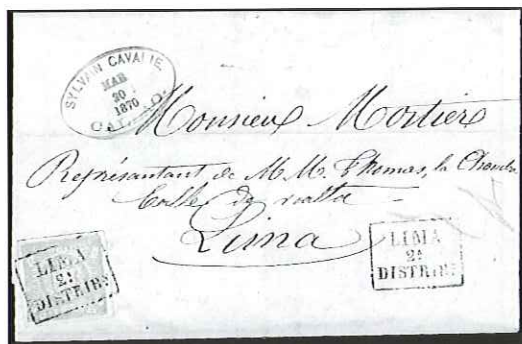 SYLVAIN CAVALIE.
MAR
20
1870
CALLAO.
Monsieur Mortiere
Représentant de M M. Thomas, la Chambre
Calle de
Lima
LIMA
2ª
DISTRIBN
LIMA
2ª
DISTRIBN